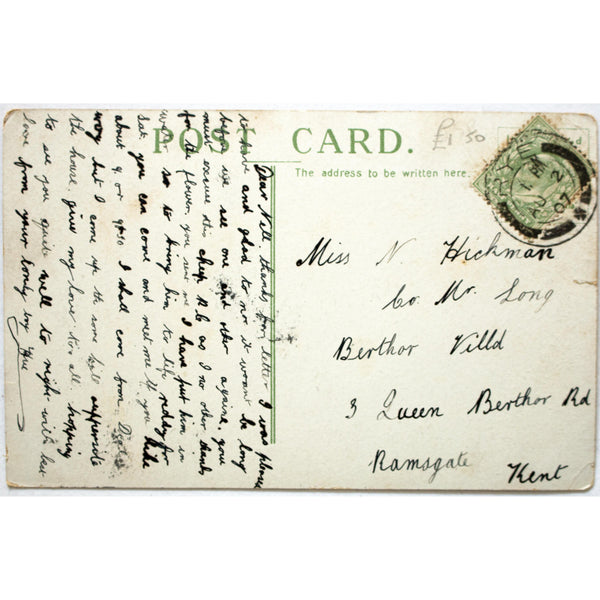 POST CARD.
The address to be written here.
£1.50
RYE
AU 2
07
Miss N. Hickman
Co Mr. Long
Berthor Villa
3 Queen Berthor Rd
Ramsgate
Kent
Dear Nell, thanks for letter I was please
to have and glad to it wont be long
before we see one and other againe, you
must excuse this as I no other thanks
for the flower, you sent me I have put him in
so to bring him to life reddy for
Sat you can come and meet me if you like
about 9 or 9.30 I shall come from
way but I come up the same hill oppersite
the house, give my love to all hopping
to see you quite well to night with best
love from your loney boy